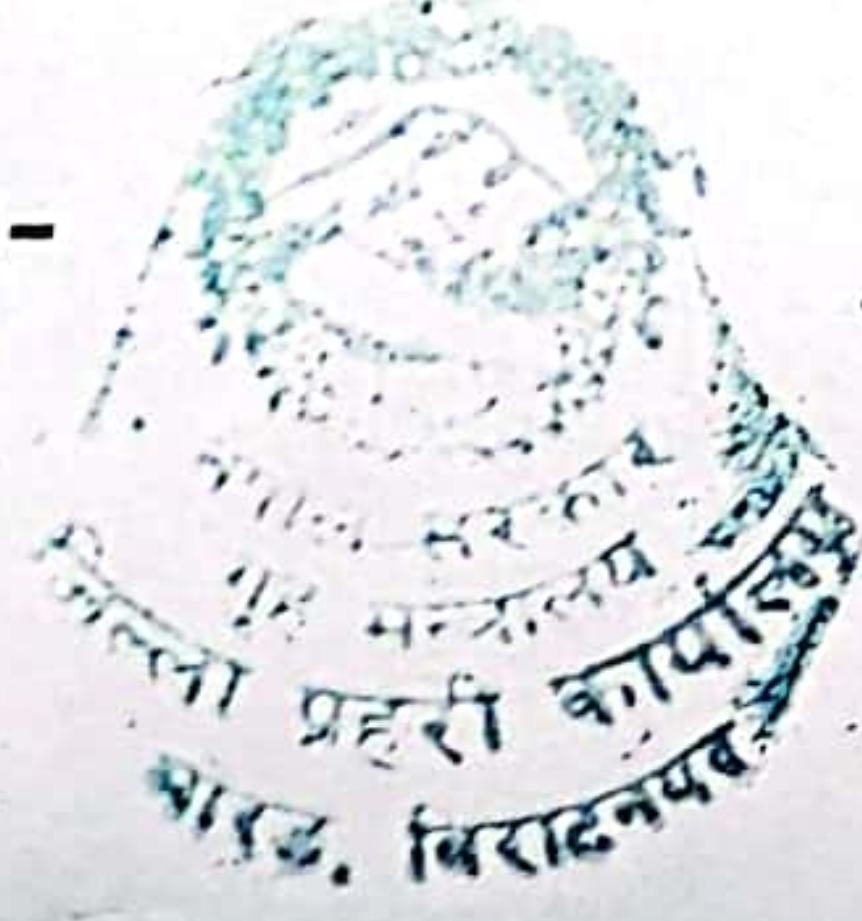 नेपाल सरकार
गृह मन्त्रालय
जिल्ला प्रहरी कार्यालय
मोरङ, विराटनगर